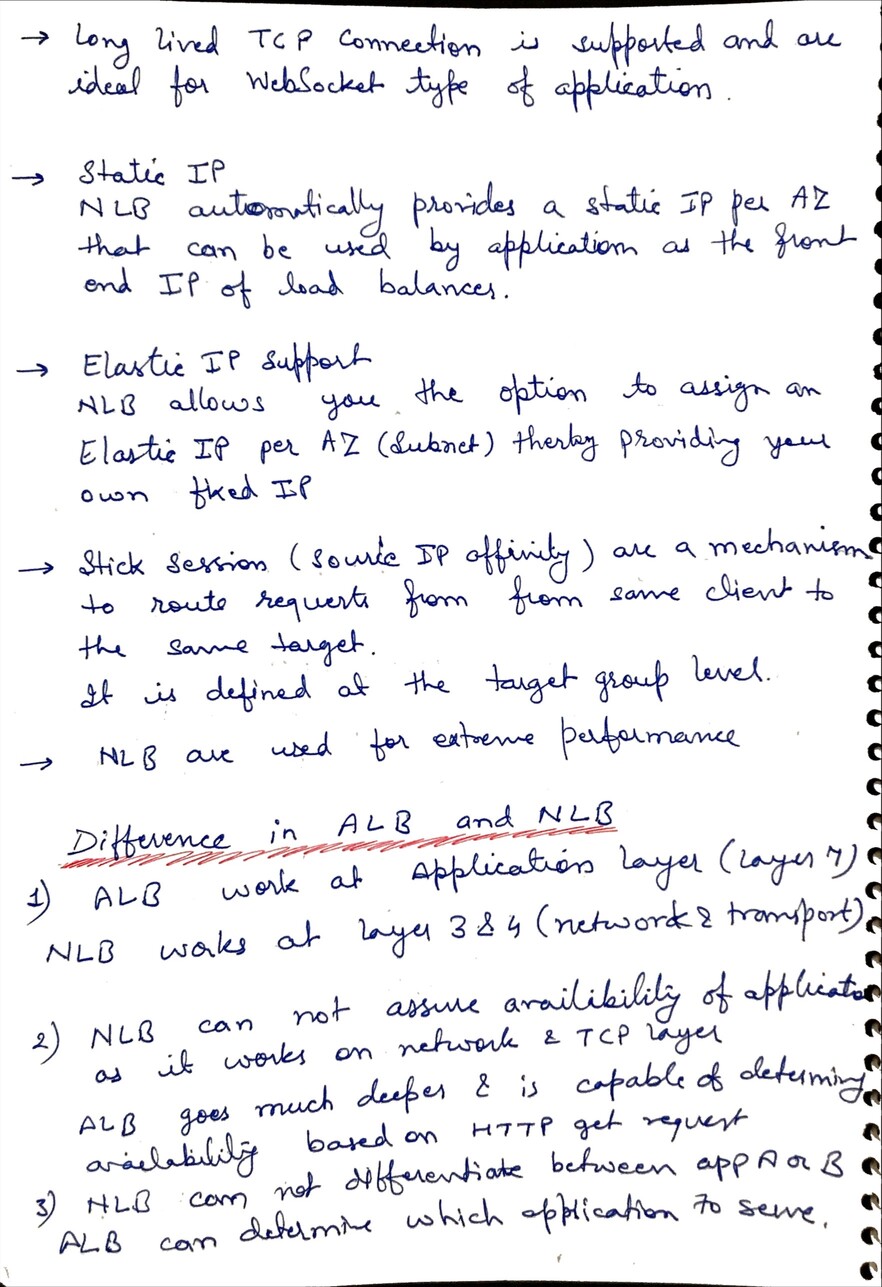 → Long lived TCP Connection is supported and are
ideal for WebSocket type of application.
→ Static IP
NLB automatically provides a static IP per AZ
that can be used by application as the front
end IP of load balances.
→ Elastic IP Support
NLB allows you the option to assign an
Elastic IP per AZ (Subnet) therby providing your
own fixed IP
→ Stick Session (Source IP affinity) are a mechanism
to route requests from from same client to
the same target.
It is defined at the target group level.
→ NLB are used for extreme performance
Difference in ALB and NLB
1) ALB work at Application Layer (Layer 7)
NLB works at Layer 3 & 4 (network & transport)
2) NLB can not assure availibility of applicato
as it works on network & TCP layer
ALB goes much deeper & is capable of determining
availability based on HTTP get request
3) NLB can not differentiate between app A or B
ALB can determine which application to serve.